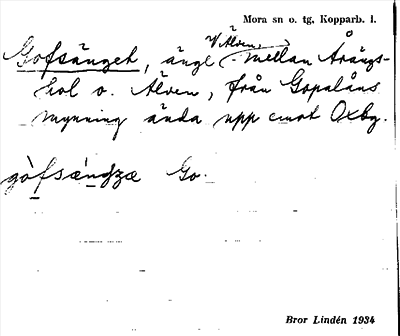 Mora sn o. tg, Kopparb. l.
V. Älven,
Gofsänget, ängl. mellan Årängs-
hol o. Älven, från Gopalåns
mynning ända upp emot Oxbg.
gòfsæ̀ŋgzæ Go.
Bror Lindén 1934